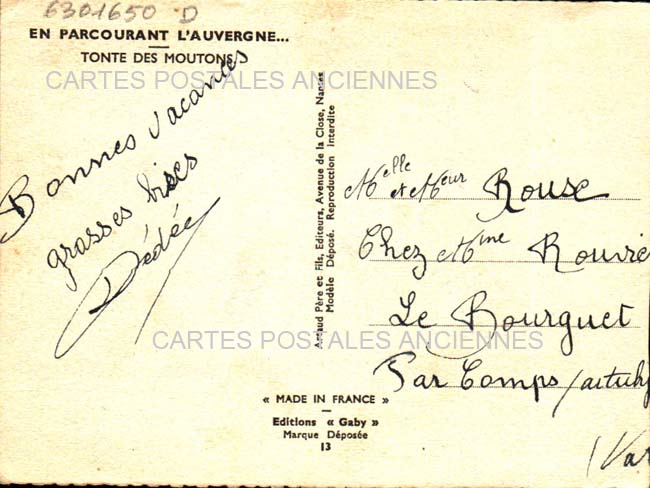 6301650 D
EN PARCOURANT L'AUVERGNE...
TONTE DES MOUTONS
CARTES POSTALES ANCIENNES
Bonnes vacances
grosses bises
Dédée
Artaud Père et Fils, Editeurs, Avenue de la Close, Nantes
Modèle Déposé. Reproduction interdite
Melle et Meur Rouse
Chez Mme Rouvie
Le Bourguet
CARTES POSTALES ANCIENNES
Par Comps/artuby
(Var
« MADE IN FRANCE »
Editions « Gaby »
Marque Déposée
13